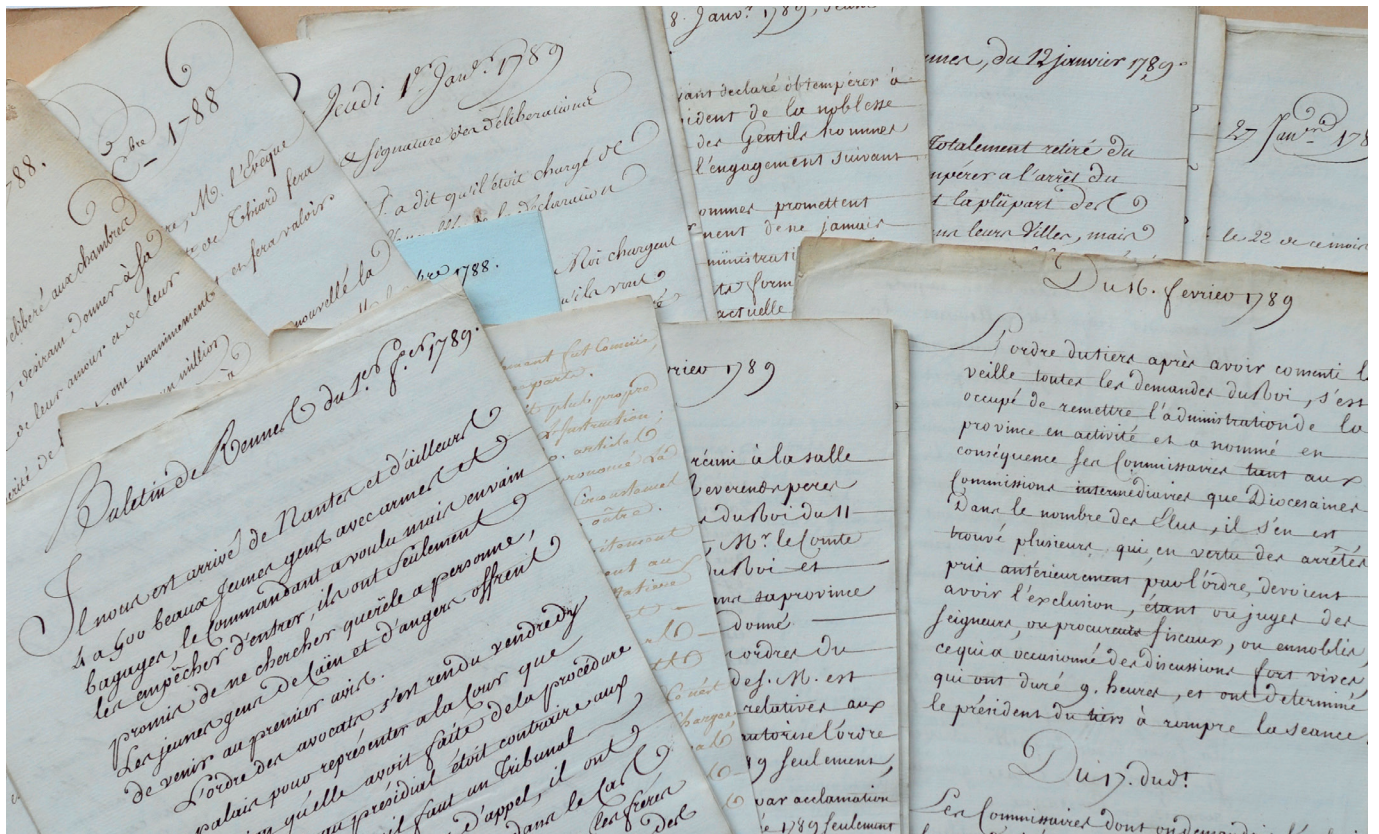 88.
délibéré aux chambres
, désirant donner à sa
de leur amour et de leur
ont unanimement
un million
à
bre 1788
re, M. l'Evêque
te de Thiard fera
et fera valoir
renouvellé la
Jeudi 1er Janv. 1789
& signature des délibérations
a dit qu'il étoit chargé de
de la déclaration
Moi chargent
qu'ils vous
bre 1788.
8. Janv. 1789,
ayant déclaré obtempérer à
président de la noblesse
des Gentils hommes
l'engagement suivant
hommes promettent
nent de ne jamais
administrati
form
actuelle
nnes, du 12 janvier 1789.
totalement retiré du
mpérer a l'arrêt du
t la plupart des
ns leurs Villes, mais
27 Janv. 178
le 22 de ce mois
Buletin de Rennes du 1er f.er 1789.
Il nous est arrivé de Nantes et d'ailleurs
4 a 500 beaux jeunes gens avec armes et
bagages, le Commandant a voulu mais envain
les empêcher d'entrer, ils ont seulement
promis de ne chercher querèle a personne,
Les jeunes gens de Caën et d'angers offrent
de venir au premier avis.
L'ordre des avocats s'en rendu vendredy
palais pour représenter a la Cour que
qu'elle avoit faite de la procédure
au présidial étoit contraire aux
il faut un Tribunal
d'appel, il ont
dans le Cas
les frères
des
nant fut Comise,
parte.
plus propre
instruction;
article
prononcé la
Circonstances
outre.
vrier 1789
réuni à la salle
Reverends peres
du Roi du 11
Mr. le Comte
du Roi et
ns sa province
donné
ordres du
de S. M. est
relatives aux
autorise l'ordre
89 seulement,
par acclamation
e 1789 seulement
Du 16. fevrier 1789
L'ordre du tiers après avoir consenti l
veille toutes les demandes du Roi, s'est
occupé de remettre l'administration de la
province en activité et a nommé en
conséquence ses Commissaires tant aux
Commissions intermédiaires que Diocesaines
Dans le nombre des Elus, il s'en est
trouvé plusieurs qui, en vertu des arrêtés
pris antérieurement par l'ordre, devoient
avoir l'exclusion, étant ou juges des
seigneurs, ou procureurs fiscaux, ou ennoblis,
ce qui a occasionné des discussions fort vives,
qui ont duré 9. heures, et ont determiné
le président du tiers à rompre la seance.
Du 17. dudt.
Les Commissaires dont on demandoit l'